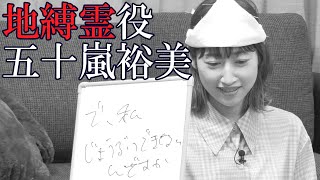 地縛霊役
五十嵐裕美
で、私
じょうぶつできない
んですか